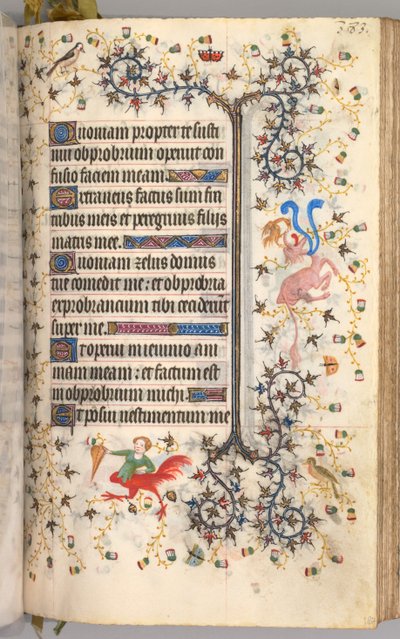 Quoniam propter te susti
nuit obprobrium operuit con
fusio faciem meam.
Extraneus factus sum fra
tribus meis et peregrinus filijs
matris mee.
Quoniam zelus domus
tue comedit me: et obprobria
exprobrancium tibi ceciderūt
super me.
Et operui in ieiunio ani
mam meam: et factum est
in obprobrium michi.
Et posui vestimentum me